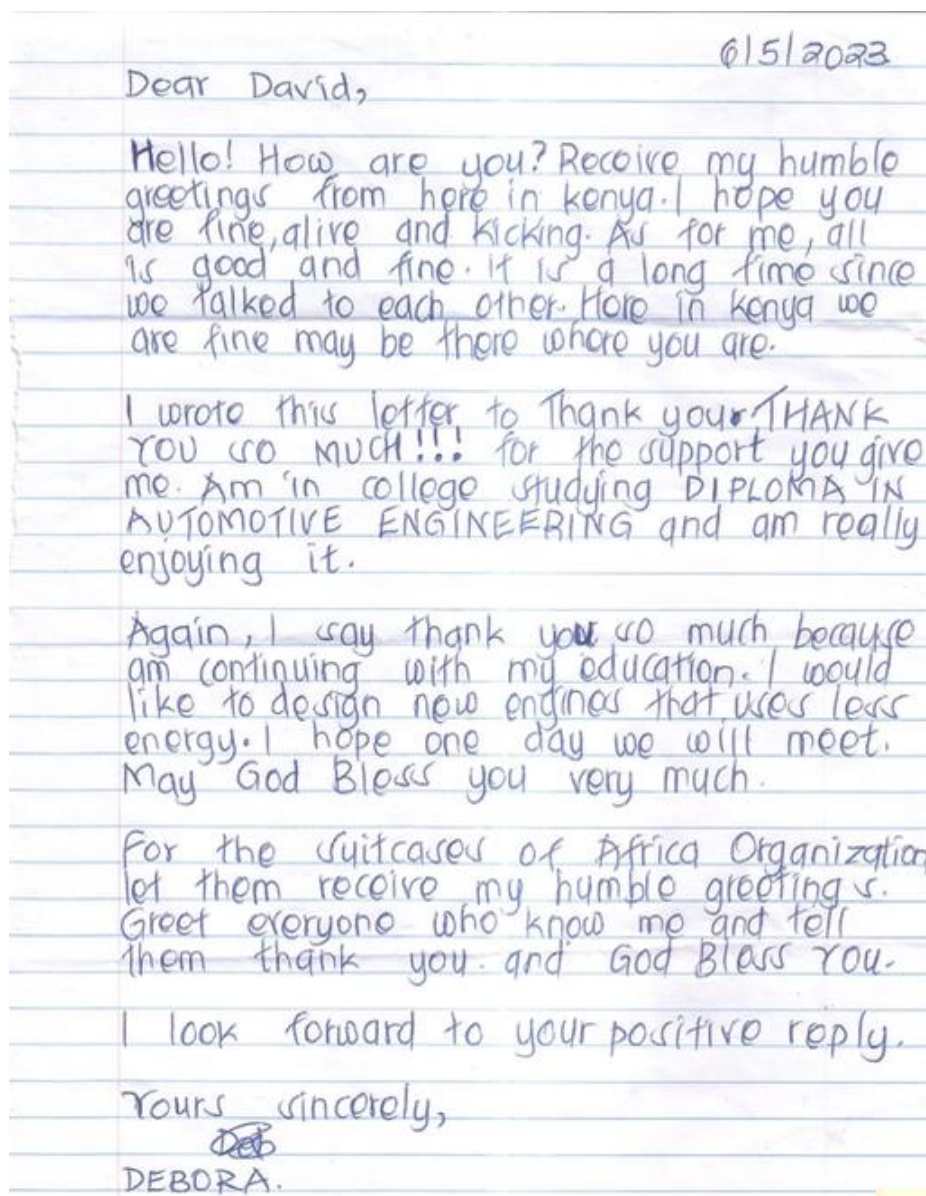 6/5/2023
Dear David,
Hello! How are you? Receive my humble
greetings from here in kenya. I hope you
are fine, alive and kicking. As for me, all
is good and fine. It is a long time since
we talked to each other. Here in kenya we
are fine may be there where you are.
I wrote this letter to Thank you. THANK
YOU SO MUCH!!! for the support you give
me. Am in college studying DIPLOMA IN
AUTOMOTIVE ENGINEERING and am really
enjoying it.
Again, I say thank you so much because
am continuing with my education. I would
like to design new engines that uses less
energy. I hope one day we will meet.
May God Bless you very much.
For the suitcases of Africa Organization
let them receive my humble greetings.
Greet everyone who know me and tell
them thank you. and God Bless You.
I look forward to your positive reply.
Yours sincerely,
Deb
DEBORA.